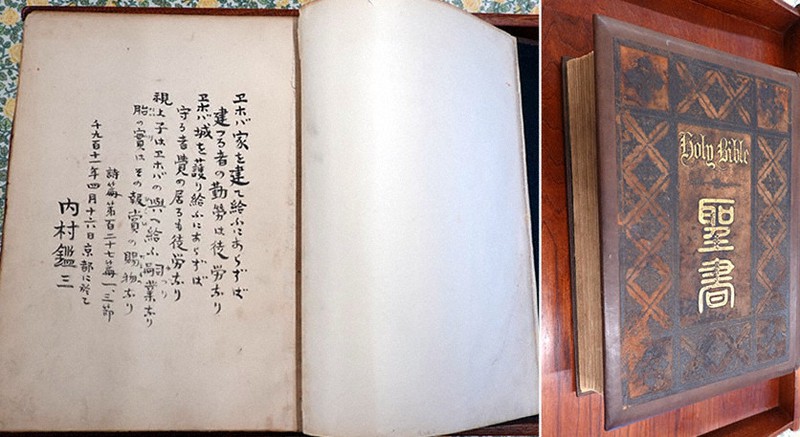 ヱホバ家を建て給ふにあらずば
建つる者の勤勞は徒労なり
ヱホバ城を護り給ふにあらずば
守る者覺め居るも徒労なり
視よ子はヱホバの與へ給ふ嗣業なり
胎の實はその報賞の賜物なり
詩篇第百二十七篇一、三節
千九百十一年四月十六日京都に於て
内村鑑三
Holy Bible
聖書